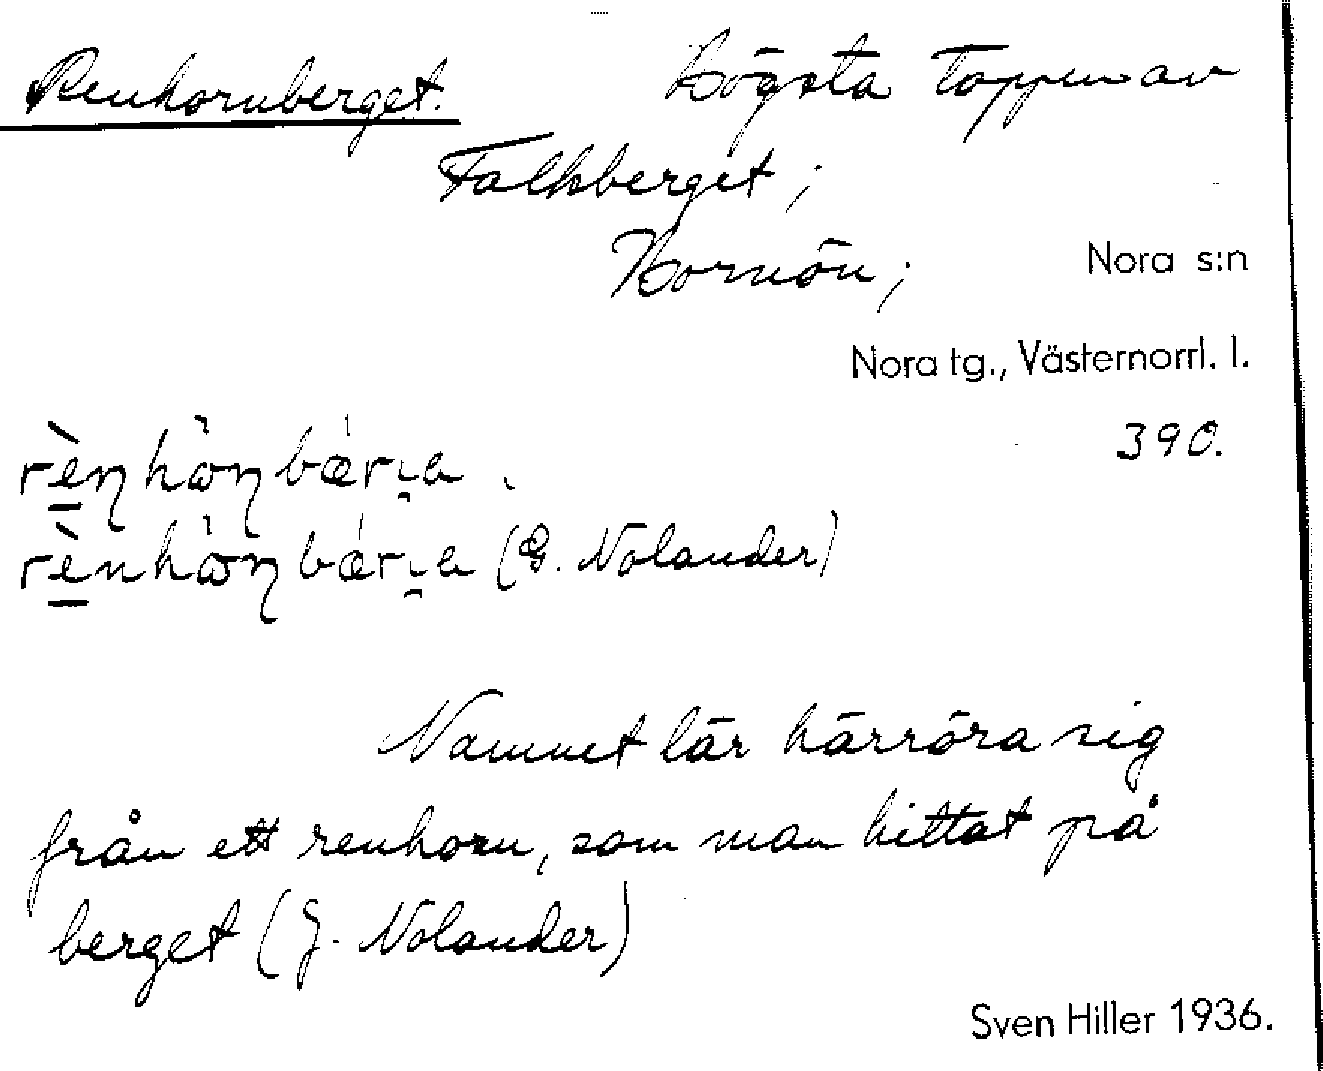 Renhornberget. Högsta toppen av
Falkberget;
Hornön; Nora s:n
Nora tg., Västernorrl. l.
390.
rèn̠hὼn̠bǽrɪ̯a.
rènhὼn̠bǽrɪ̯a (G. Nolander)
Namnet lär härröra sig
från ett renhorn, som man hittat på
berget (G. Nolander)
Sven Hiller 1936.